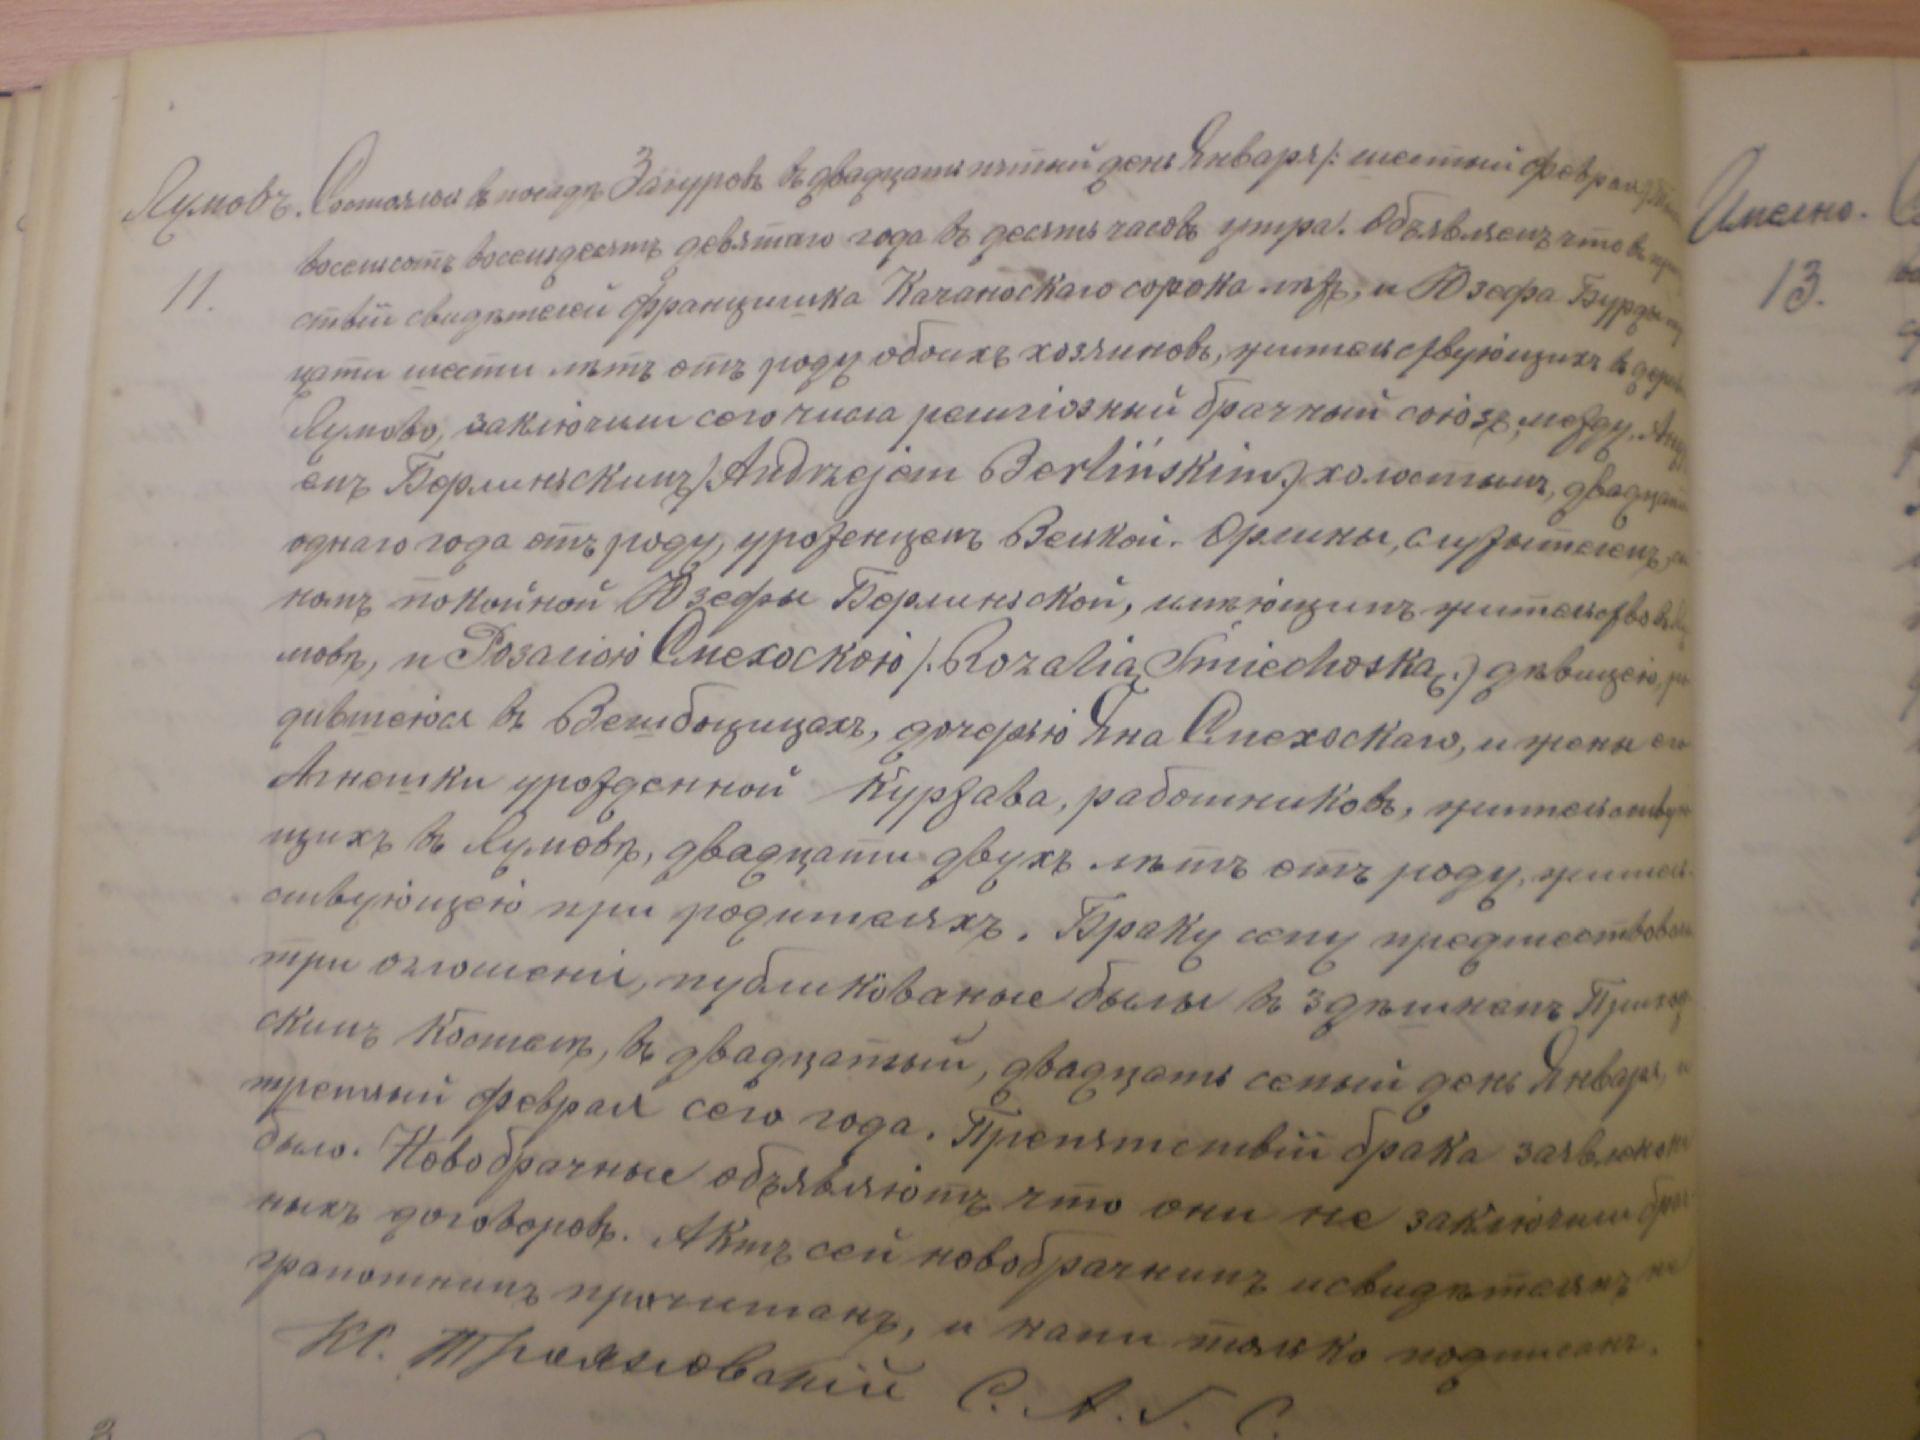 Лумовъ. Состоялся въ посадѣ Загуровѣ въ двадцать пятый день Января /: шестый Февраля
11. восемсотъ восемьдесятъ девятаго года въ десять часовъ утра. Объявляемъ что въ при
ствіи свидѣтелей Францишка Качаноскаго сорока лѣтъ, и Юзефа Бурды
цати шести лѣтъ отъ роду обоихъ хозяиновъ, жительствующихъ въ дерев
Лумово, заключили сего числа религіозный брачный союзъ, между
емъ Берлиньскимъ /Andrzejem Berlińskim/ холостымъ, двадцати
однаго года отъ роду, уроженцемъ Велкой-Орлины, служителемъ, сы
номъ покойной Юзефы Берлиньской, имѣющимъ жительство въ Лу
мовѣ, и Розаліою Смехоскою /:Rozalią Śmiechoską:/ дѣвицею, ро
дившеюся въ Вешбоцицахъ, дочерью Яна Смехоскаго, и жены его
Агнешки урожденной Куржава, работниковъ, жительствую
щихъ въ Лумовѣ, двадцати двухъ лѣтъ отъ роду, житель-
ствующею при родителяхъ. Браку сему предшествовали
три оглошеніи, публикованые былы въ здѣшнемъ Приход
скимъ Костелѣ, въ двадцатый, двадцать семый день Января, и
третый Февраля сего года. Препятствій брака заявлено не
было. Новобрачные объявляютъ что они не заключили брач
ныхъ договоровъ. Актъ сей новобрачнимъ и свидѣтелямъ не
грамотнимъ прочитанъ, и нами только подписанъ.
Кс. С. А. Г. С.
Именно.
13.